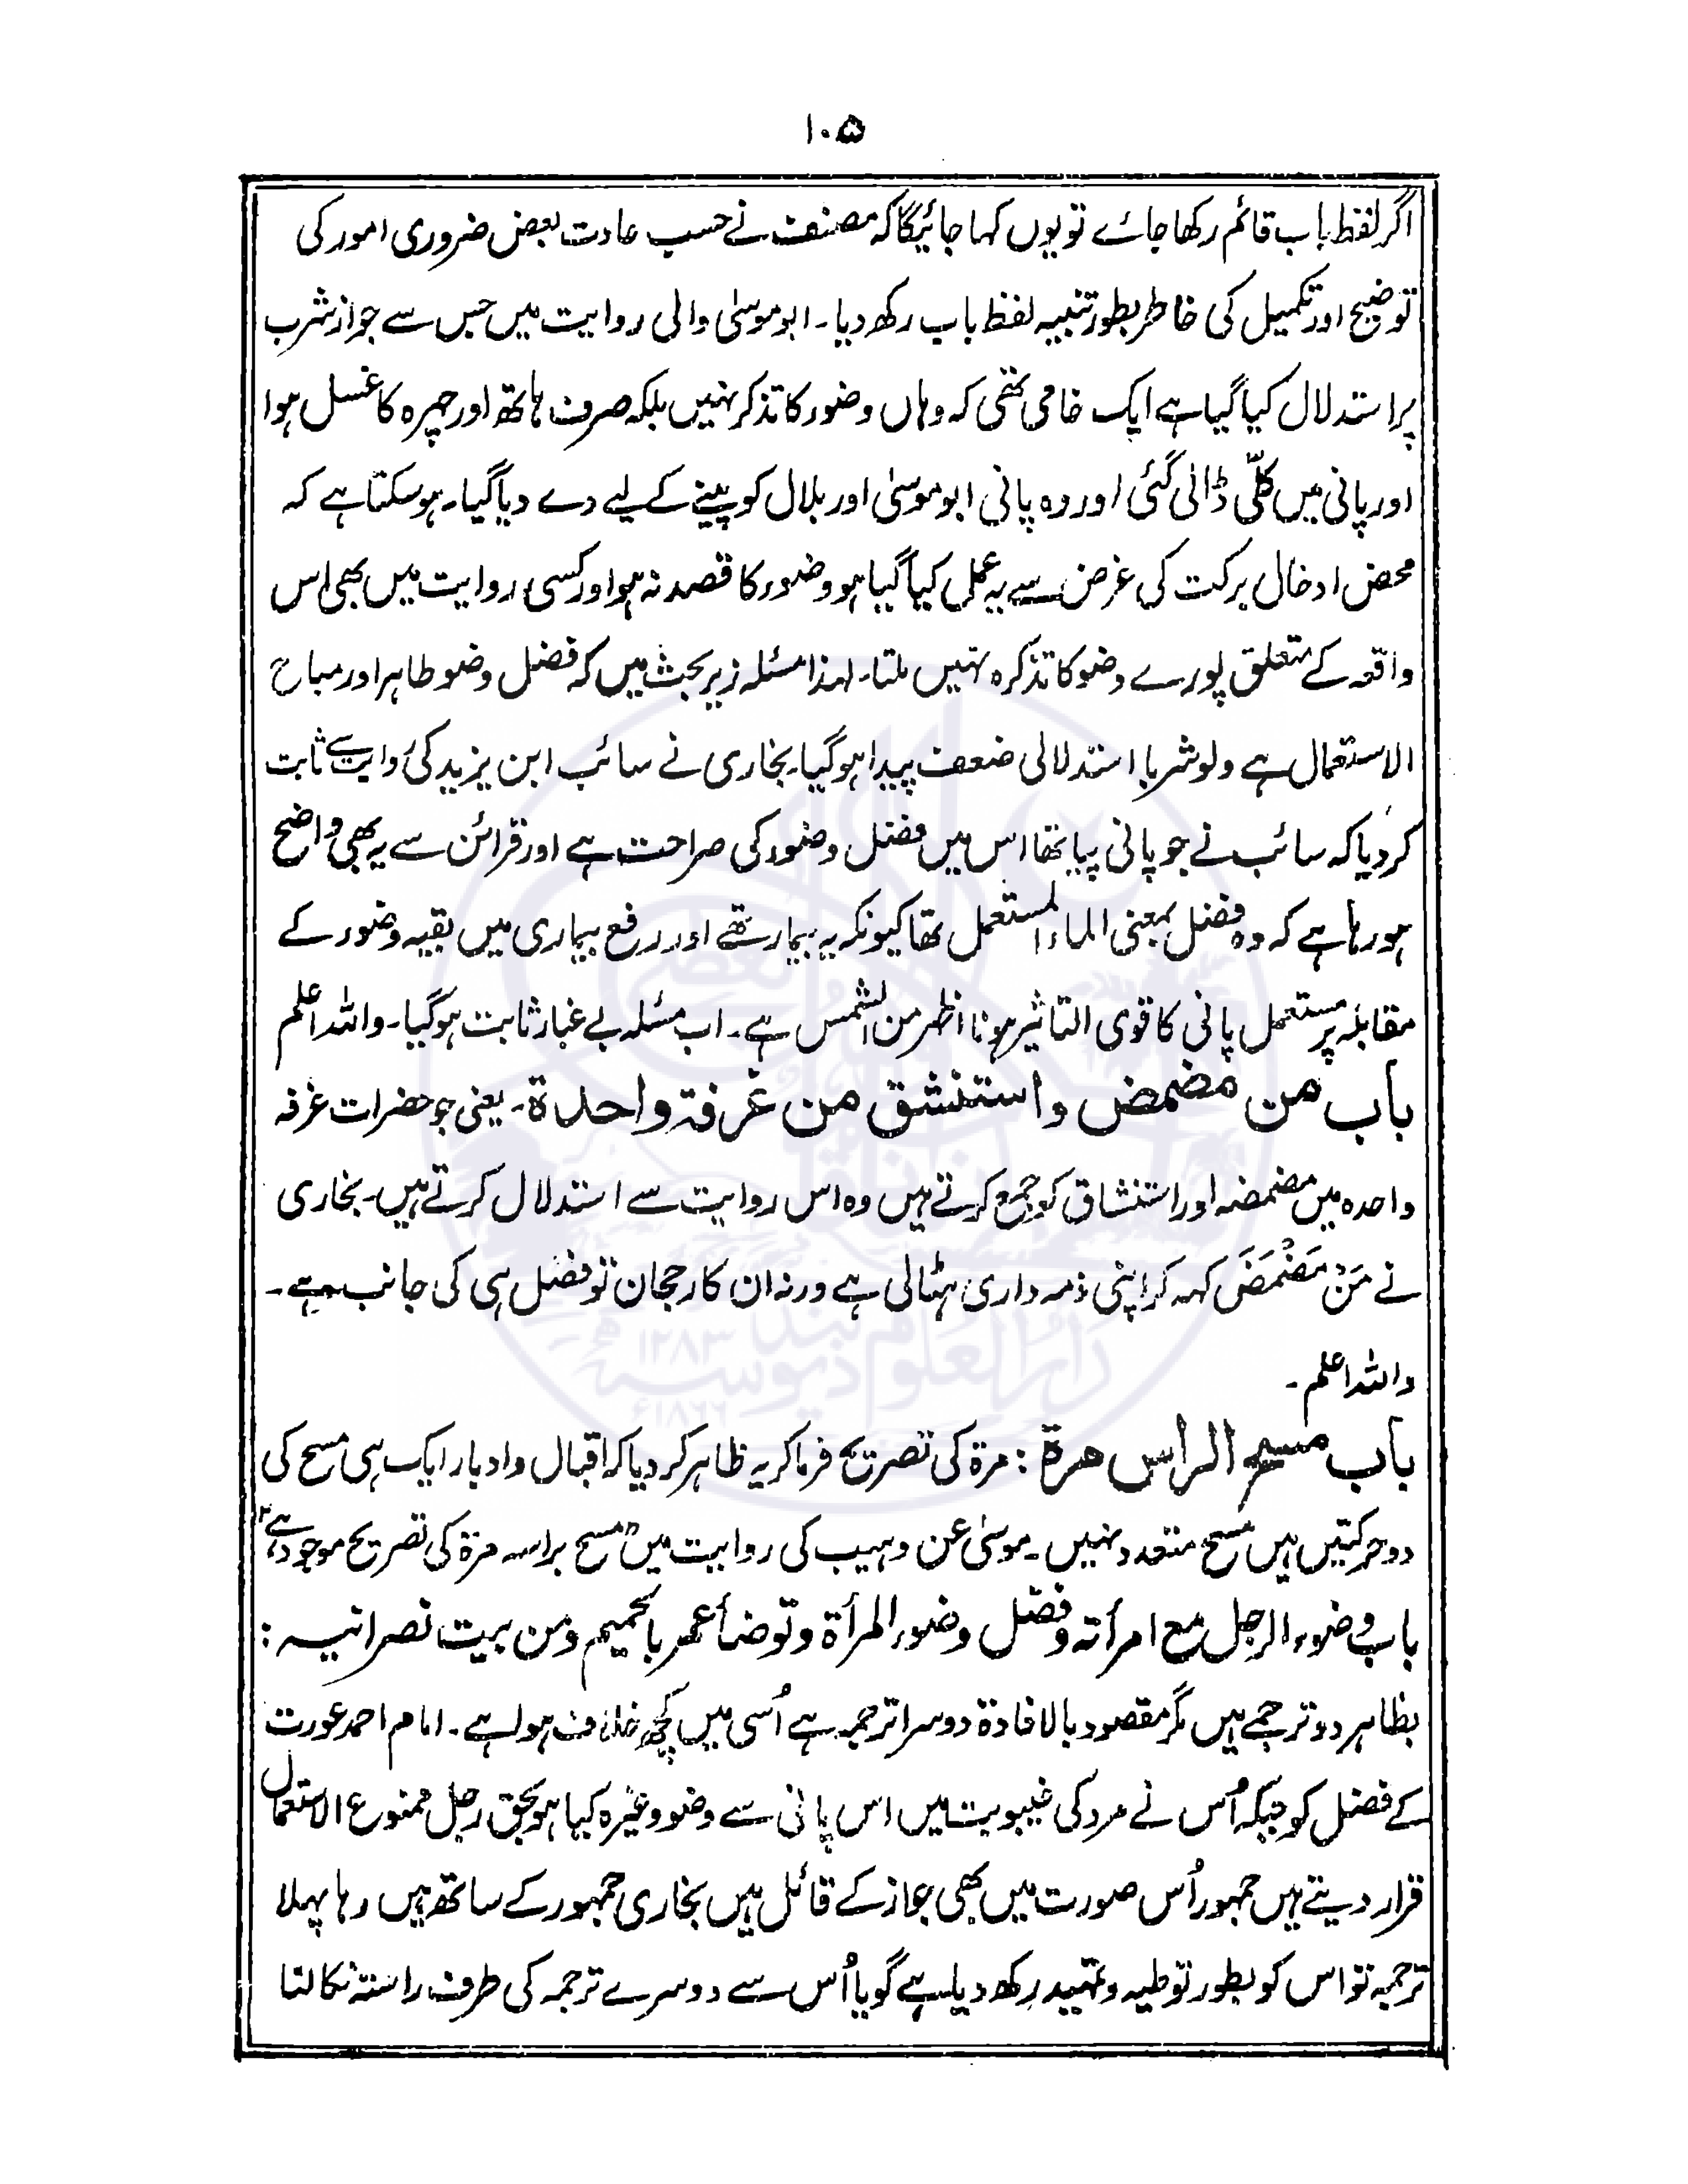 ۱۰۵
اگر لفظ باب قائم رکھا جائے تو یوں کہا جائیگا کہ مصنف نے حسب عادت بعض ضروری امور کی
توضیح اور تکمیل کی خاطر بطور تنبیہ لفظ باب رکھ دیا۔ ابو موسیٰ والی روایت میں جس سے جواز شرب
پر استدلال کیا گیا ہے ایک خامی تھی کہ وہاں وضور کا تذکر نہیں بلکہ صرف ہاتھ اور چہرہ کا غسل ہوا
اور پانی میں کلّی ڈالی گئی اور وہ پانی ابو موسیٰ اور بلال کو پینے کے لیے دے دیا گیا۔ ہو سکتا ہے کہ
محض ادخال برکت کی غرض سے یہ عمل کیا گیا ہو وضور کا قصد نہ ہو اور کسی روایت میں بھی اس
واقعہ کے متعلق پورے وضو کا تذکرہ نہیں ملتا۔ لہذا مسئلہ زیر بحث میں کہ فضل وضو طاہر اور مباح
الاستعمال ہے ولو شربا استدلالی ضعف پیدا ہو گیا۔ بخاری نے سائب ابن یزید کی روایت سے ثابت
کر دیا کہ سائب نے جو پانی پیا تھا اس میں فضل وضور کی صراحت ہے اور قرائن سے یہ بھی واضح
ہو رہا ہے کہ وہ فضل بمعنی الماء المستعمل تھا کیونکہ یہ بیمار تھے اور رفع بیماری میں بقیہ وضور کے
مقابلہ پر مستعمل پانی کا قوی التاثیر ہونا اظہر من الشمس ہے۔ اب مسئلہ بے غبار ثابت ہو گیا۔ واللہ اعلم
باب من مضمض واستنشق من غرفۃ واحدۃ۔ یعنی جو حضرات غرفہ
واحدہ میں مضمضہ اور استنشاق کو جمع کرتے ہیں وہ اس روایت سے استدلال کرتے ہیں۔ بخاری
نے مَنْ مَضْمَضَ کہہ کر اپنی ذمہ داری ہٹالی ہے ورنہ ان کا رجحان تو فضل ہی کی جانب ہے۔
واللہ اعلم۔
باب مسح الراس مرۃ : مرۃ کی تصریح فرما کر یہ ظاہر کر دیا کہ اقبال و ادبار ایک ہی مسح کی
دو حرکتیں ہیں مسح متعدد نہیں۔ موسیٰ عن وہیب کی روایت میں مسح براسہ مرۃ کی تصریح موجود ہے
باب وضوء الرجل مع امرأتہ وفضل وضوء المرأۃ وتوضأ عمر بالحمیم ومن بیت نصرانیہ :
بظاہر دو ترجمے ہیں مگر مقصود بالافادۃ دوسرا ترجمہ ہے اُسی میں کچھ خلاف ہوا ہے۔ امام احمد عورت
کے فضل کو جبکہ اُس نے مرد کی غیبوبت میں اس پانی سے وضو وغیرہ کیا ہو بحق رجل ممنوع الاستعمال
قرار دیتے ہیں جمہور اُس صورت میں بھی جواز کے قائل ہیں بخاری جمہور کے ساتھ ہیں رہا پہلا
ترجمہ تو اس کو بطور توطیہ و تمہید رکھ دیا ہے گویا اُس سے دوسرے ترجمہ کی طرف راستہ نکالنا
دار العلوم دیوبند
۱۲۸۳ھ
۱۸۶۶ء